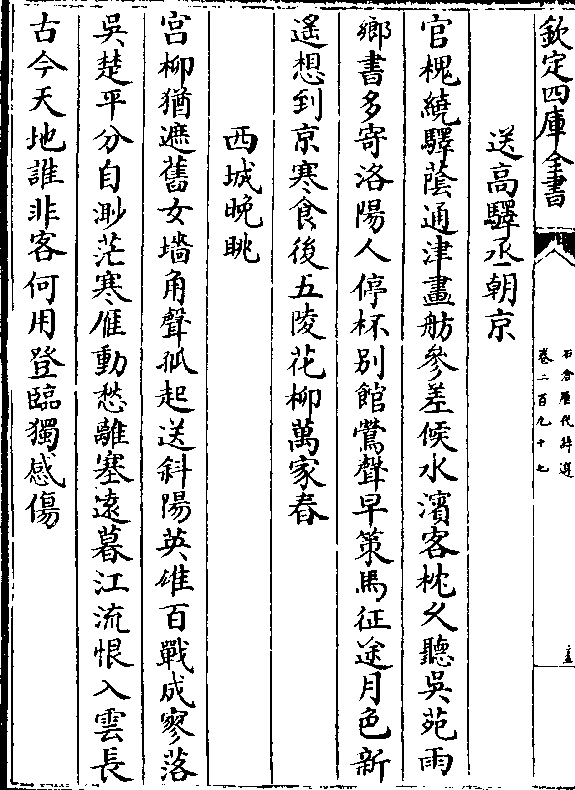 欽定四庫全書
石倉歷代詩選
卷二百九十七
送高驛丞朝京
官槐繞驛蔭通津畫舫參差候水濱客枕久聽吳苑雨
鄉書多寄洛陽人停杯別館鶯聲早策馬征途月色新
遙想到京寒食後五陵花柳萬家春
西城晚眺
宮柳猶遮舊女墻角聲孤起送斜陽英雄百戰成寥落
吳楚平分自渺茫寒雁動愁離塞遠暮江流恨入雲長
古今天地誰非客何用登臨獨感傷